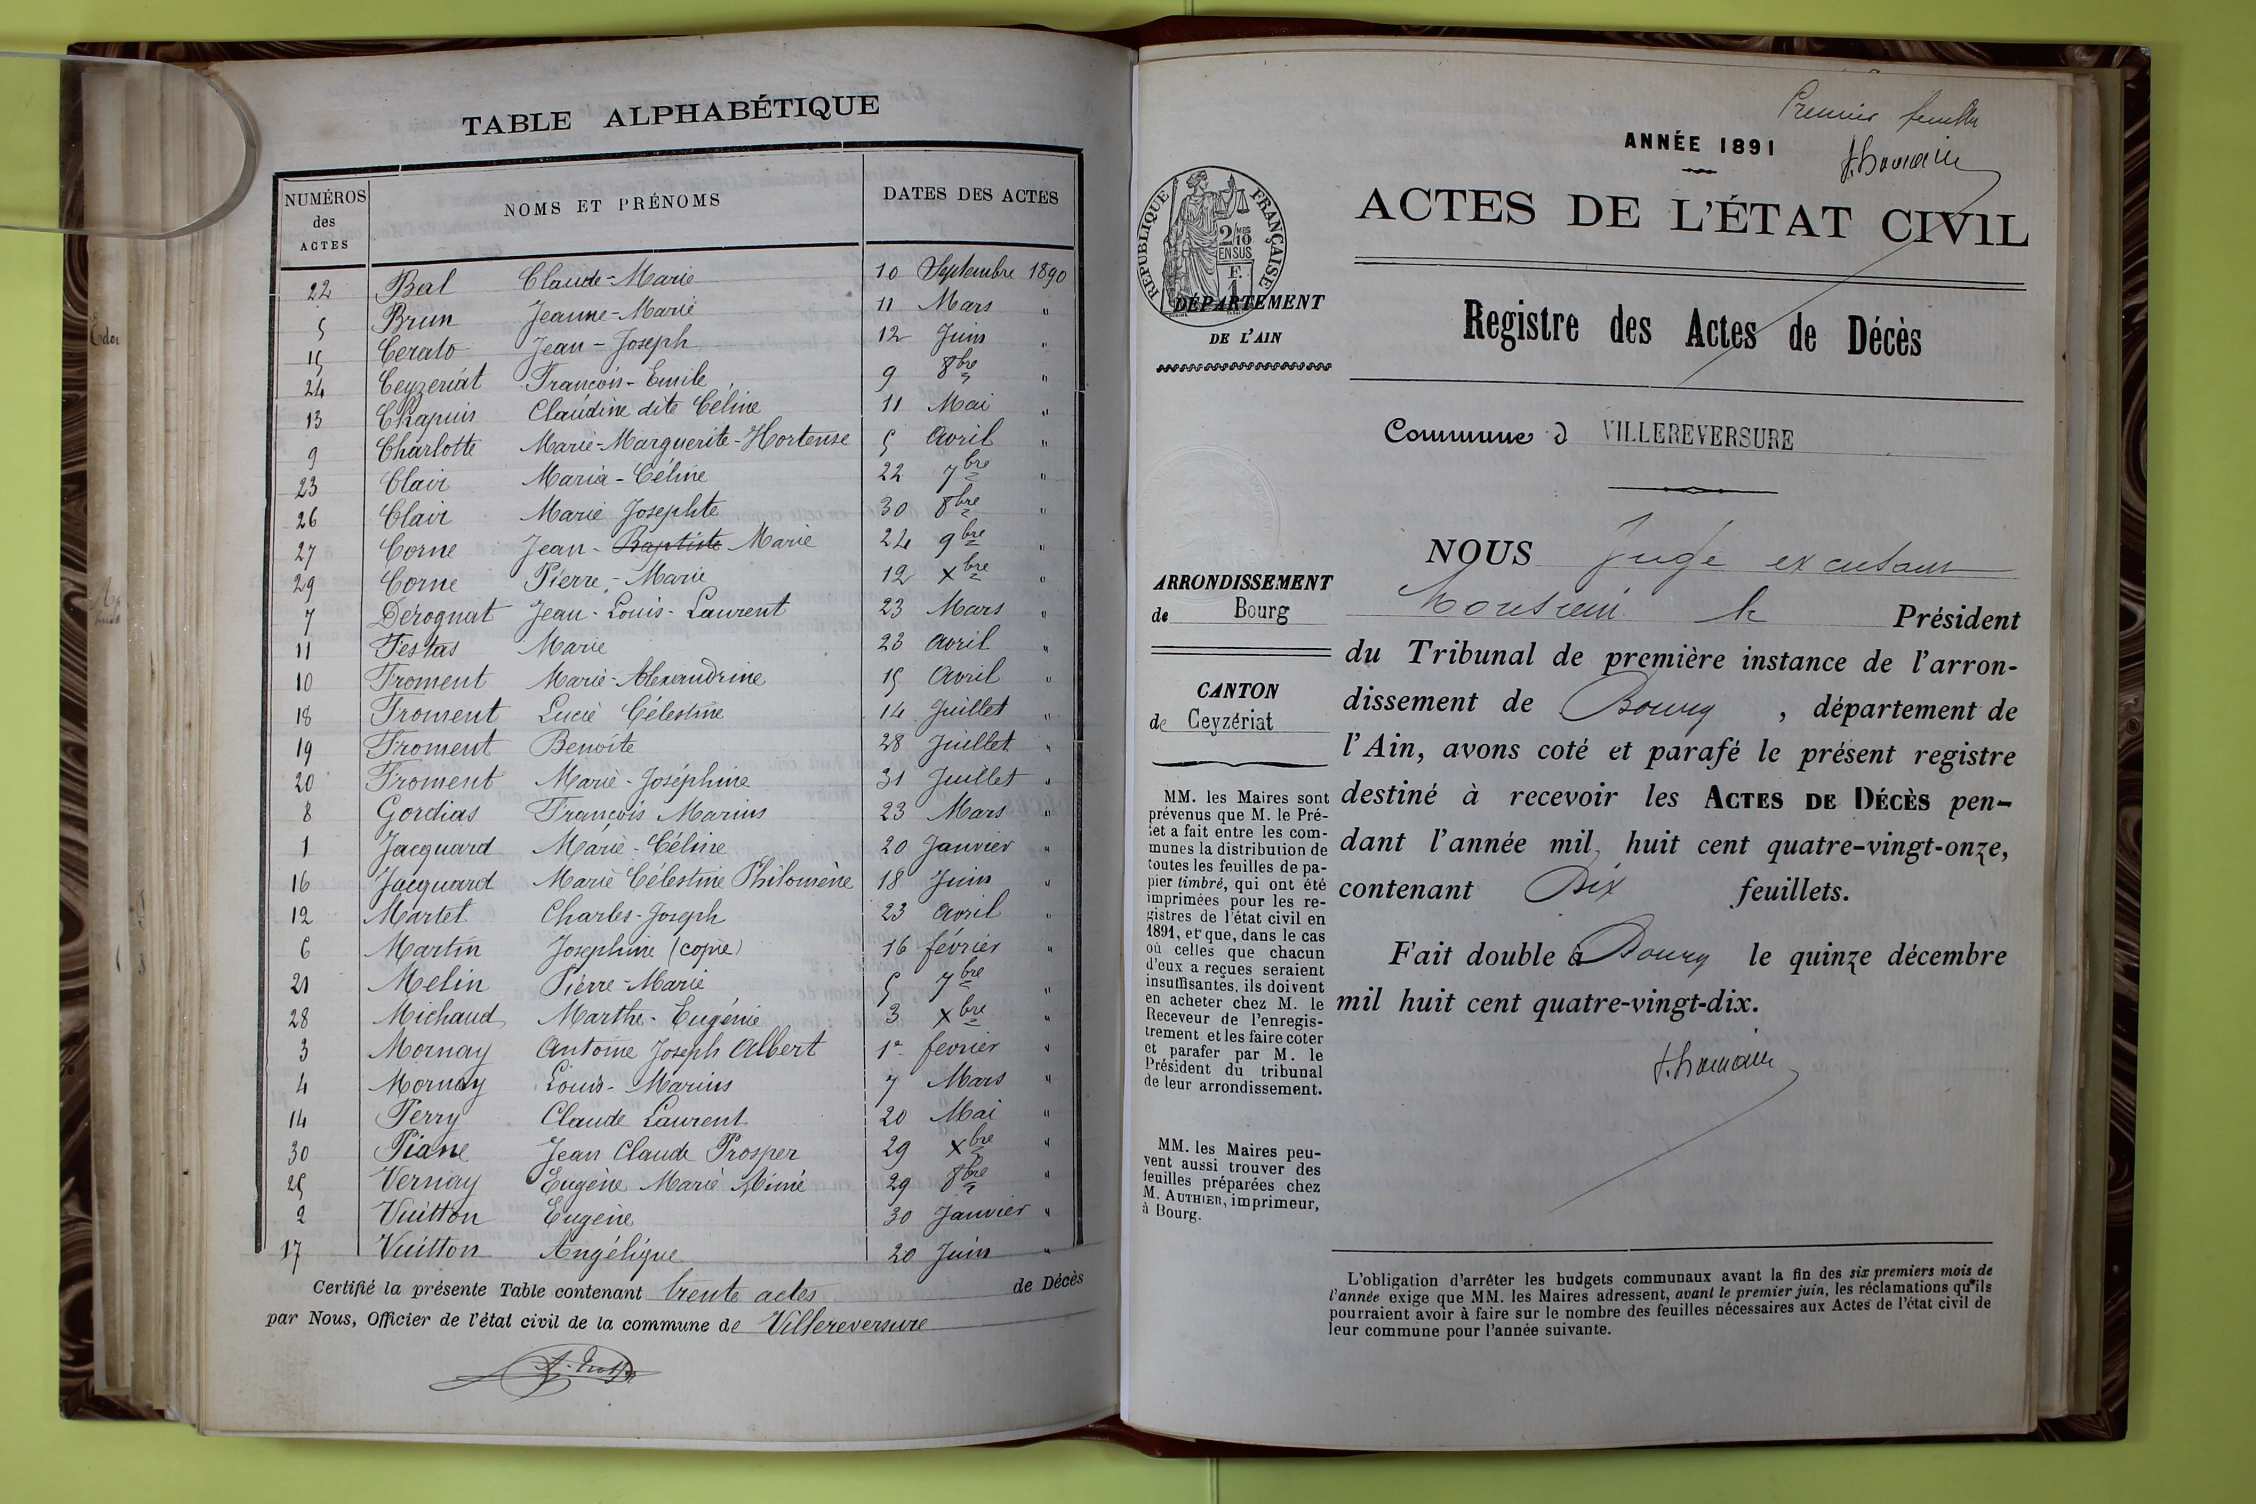 TABLE ALPHABÉTIQUE
NUMÉROS des ACTES NOMS ET PRÉNOMS DATES DES ACTES
22 Bal Claude-Marie 10 Septembre 1890
5 Brun Jeanne-Marie 11 Mars "
15 Cerato Jean-Joseph 12 Juin "
24 Ceyzeriat François-Emile 9 8bre "
13 Chapuis Claudine dite Céline 11 Mai "
9 Charlotte Marie-Marguerite-Hortense 5 Avril "
23 Clair Maria-Céline 22 7bre "
26 Clair Marie Josephte 30 8bre "
27 Corne Jean-Baptiste Marie 24 9bre "
29 Corne Pierre-Marie 12 Xbre "
7 Derognat Jean-Louis-Laurent 23 Mars "
11 Festas Marie 23 Avril "
10 Froment Marie-Alexandrine 15 Avril "
18 Froment Lucie Célestine 14 Juillet "
19 Froment Benoite 28 Juillet "
20 Froment Marie-Joséphine 31 Juillet "
8 Gordias François Marius 23 Mars "
1 Jacquard Marie-Céline 20 Janvier "
16 Jacquard Marie Célestine Philomène 18 Juin "
12 Martel Charles-Joseph 23 Avril "
6 Martin Josephine (copie) 16 février "
21 Melin Pierre-Marie 5 7bre "
28 Michaud Marthe-Eugénie 3 Xbre "
3 Mornay Antoine Joseph Albert 1er février "
4 Mornay Louis-Marius 7 Mars "
14 Perry Claude Laurent 20 Mai "
30 Piane Jean Claude Prosper 29 Xbre "
25 Vernay Eugène Marie Aimé 29 8bre "
2 Vuitton Eugène 30 Janvier "
17 Vuitton Angélique 20 Juin "
Certifié la présente Table contenant trente actes de Décès
par Nous, Officier de l'état civil de la commune de Villereversure
Premier feuillet
ANNÉE 1891
ACTES DE L'ÉTAT CIVIL
RÉPUBLIQUE FRANÇAISE
2/10 EN SUS
F. 1
DÉPARTEMENT
DE L'AIN
Registre des Actes de Décès
Commune d VILLEREVERSURE
ARRONDISSEMENT
de Bourg
CANTON
de Ceyzériat
MM. les Maires sont
prévenus que M. le Pré-
fet a fait entre les com-
munes la distribution de
toutes les feuilles de pa-
pier timbré, qui ont été
imprimées pour les re-
gistres de l'état civil en
1891, et que, dans le cas
où celles que chacun
d'eux a reçues seraient
insuffisantes, ils doivent
en acheter chez M. le
Receveur de l'enregis-
trement et les faire coter
et parafer par M. le
Président du tribunal
de leur arrondissement.
MM. les Maires peu-
vent aussi trouver des
feuilles préparées chez
M. AUTHIER, imprimeur,
à Bourg.
NOUS Juge
le Président
du Tribunal de première instance de l'arron-
dissement de Bourg, département de
l'Ain, avons coté et parafé le présent registre
destiné à recevoir les ACTES DE DÉCÈS pen-
dant l'année mil huit cent quatre-vingt-onze,
contenant Dix feuillets.
Fait double à Bourg le quinze décembre
mil huit cent quatre-vingt-dix.
L'obligation d'arrêter les budgets communaux avant la fin des six premiers mois de
l'année exige que MM. les Maires adressent, avant le premier juin, les réclamations qu'ils
pourraient avoir à faire sur le nombre des feuilles nécessaires aux Actes de l'état civil de
leur commune pour l'année suivante.